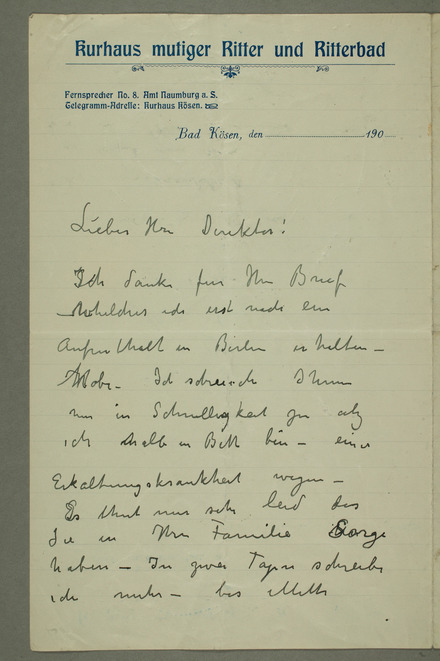 Kurhaus mutiger Ritter und Ritterbad
Fernsprecher No. 8. Amt Naumburg a. S.
Telegramm-Adresse: Kurhaus Kösen.
Bad Kösen, den 190
Lieber Herr Direktor!
Ich danke für Ihren Brief
welchen ich erst nach ein
Aufenthalt in Berlin erhalten –
habe – Ich schreibe Ihnen
nur in Schnelligkeit
ich halb in Bett bin – einer
Erkaltungskrankheit wegen –
Es thut mir sehr leid das
Sie in Ihre Familie Sorge
haben – In zwei Tagen schreibe
ich mehr – bis